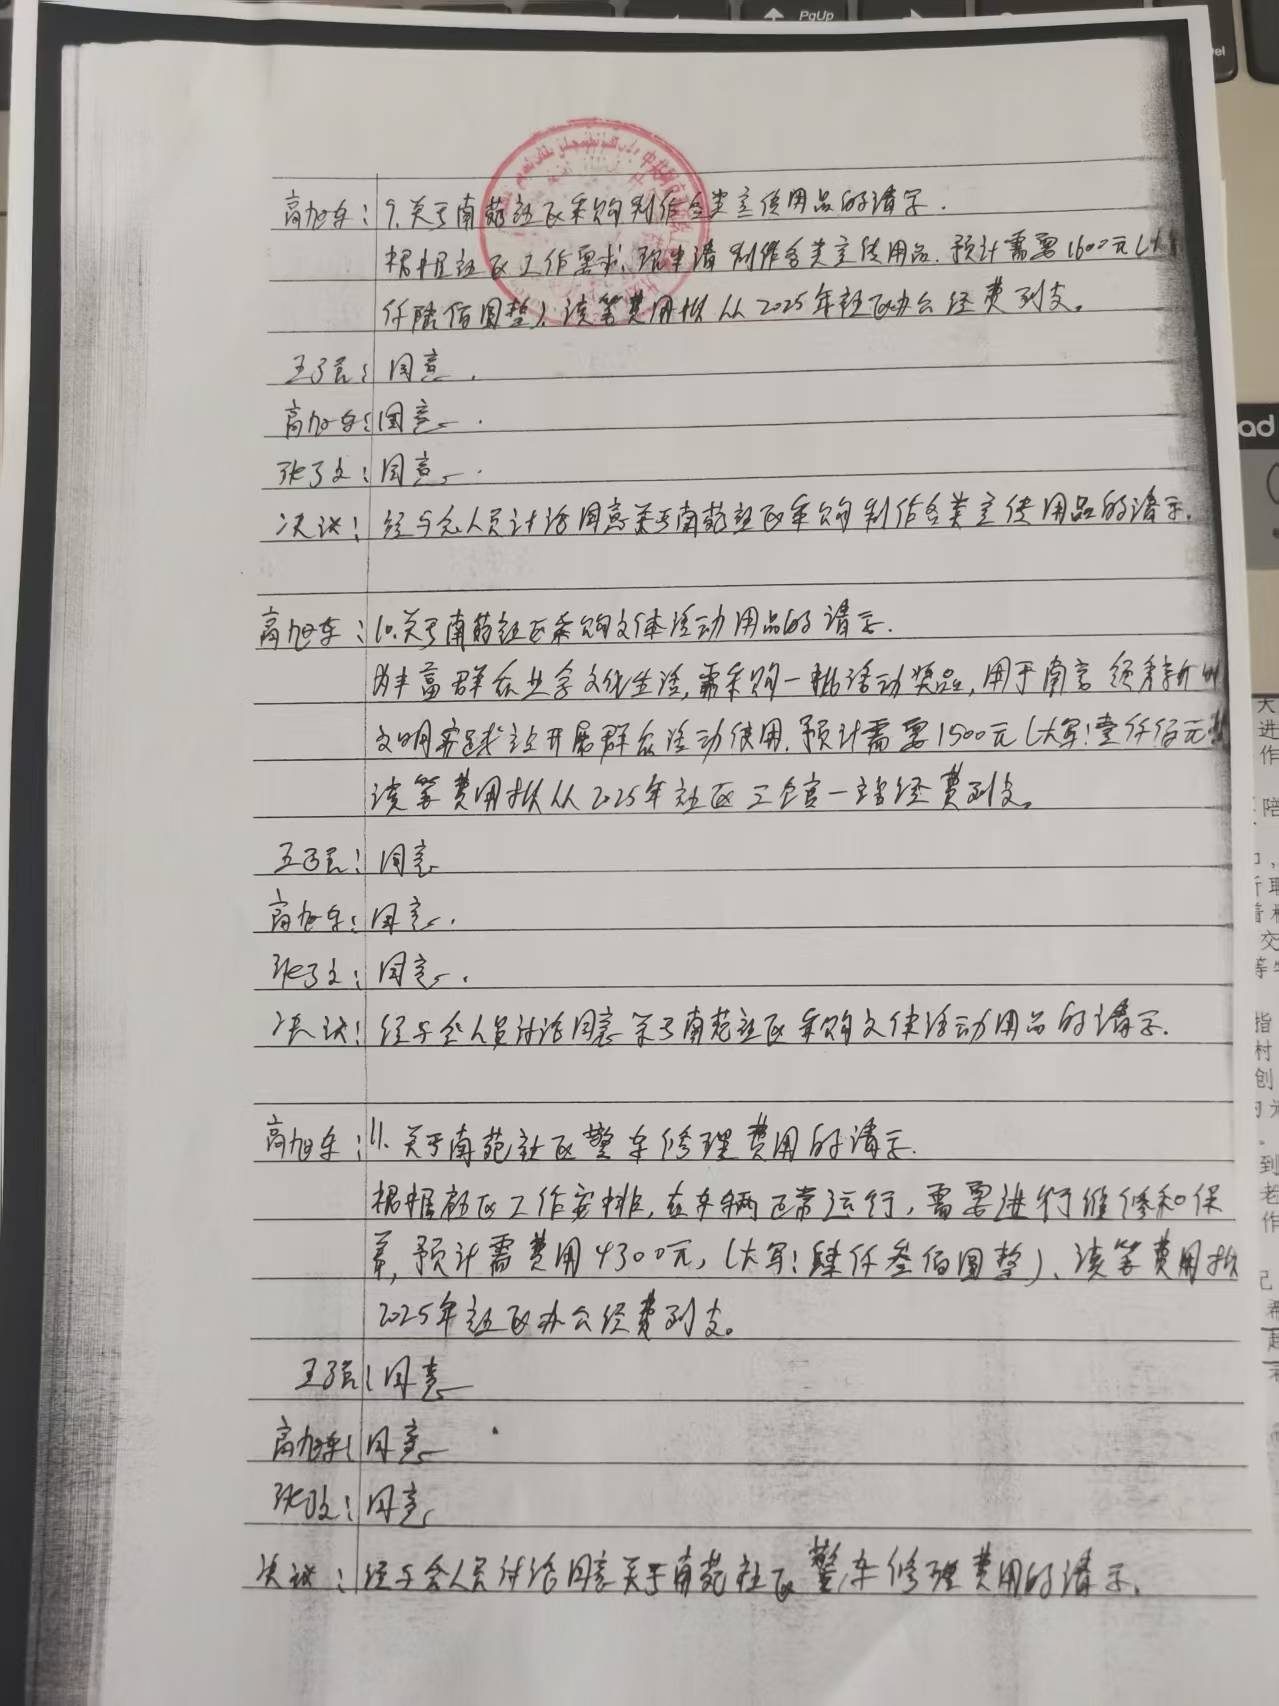 高旭东：9.关于南苑社区采购制作各类宣传用品的请示.
根据社区工作要求,现申请制作各类宣传用品.预计需要1600元(大
仟陆佰圆整).该笔费用拟从2025年社区办公经费列支。
同意.
高旭东:同意.
张 文:同意.
决议:经与会人员讨论同意关于南苑社区采购制作各类宣传用品的请示.
高旭东:10.关于南苑社区采购文体活动用品的请示.
为丰富群众业余文化生活,需采购一批活动奖品,用于南
文明实践站开展群众活动使用.预计需要1500元(大写:壹仟伍元
该笔费用拟从2025年社区 经费列支。
同意
高旭东:同意.
张 文:同意.
决议:经与会人员讨论同意关于南苑社区采购文体活动用品的请示.
高旭东:11.关于南苑社区警车修理费用的请示.
根据社区工作安排,在车辆正常运行,需要进行维修和保
养,预计需费用4300元,(大写:肆仟叁佰圆整)、该笔费用拟
2025年社区办公经费列支。
同意
高旭东:同意
同意
决议:经与会人员讨论同意关于南苑社区警车修理费用的请示.
PgUp